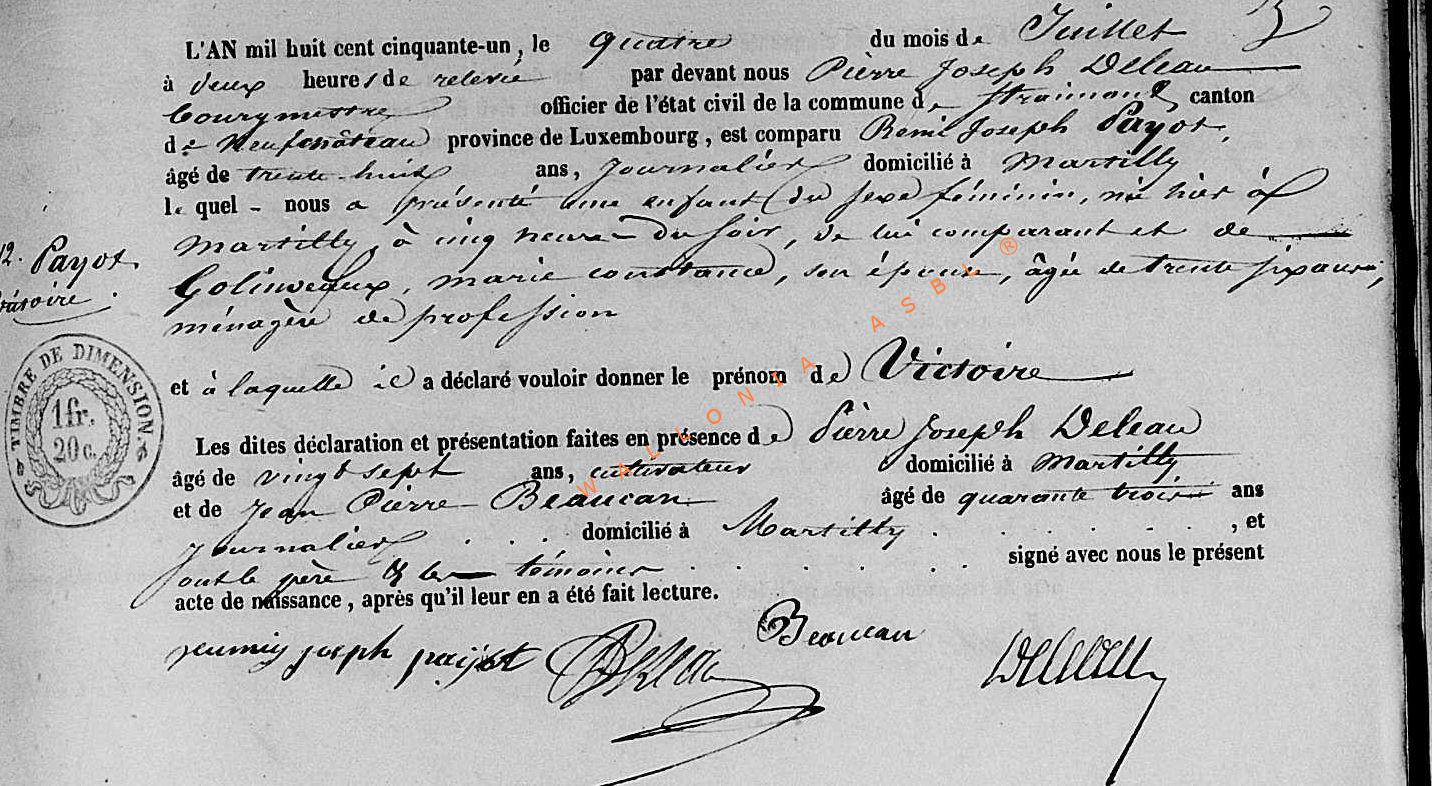 L'AN mil huit cent cinquante-un, le quatre du mois de Juillet
à deux heures de relevée par devant nous Pierre Joseph Deleau
bourgmestre officier de l'état civil de la commune de Straimont canton
de Neufchâteau province de Luxembourg, est comparu Remi Joseph Payot,
âgé de trente-huit ans, Journalier domicilié à Martilly
le quel - nous a présenté une enfant du sexe féminin, née hier à
Martilly, à cinq heures du soir, de lui comparant et de
Golinveaux, marie constance, son épouse, âgée de trente six ans,
ménagère de profession
12. Payot.
et à laquelle il a déclaré vouloir donner le prénom de Victoire
TIMBRE DE DIMENSION.
1 fr.
20 c.
Les dites déclaration et présentation faites en présence de Pierre Joseph Deleau
âgé de vingt sept ans, cultivateur domicilié à Martilly
et de Jean Pierre Beaucan âgé de quarante trois ans
Journalier . . . domicilié à Martilly . . . . . . , et
ont le père & les témoins . . . . . . signé avec nous le présent
acte de naissance, après qu'il leur en a été fait lecture.
joseph payot
Beaucan
Deleau
WALLONIA ASBL ®